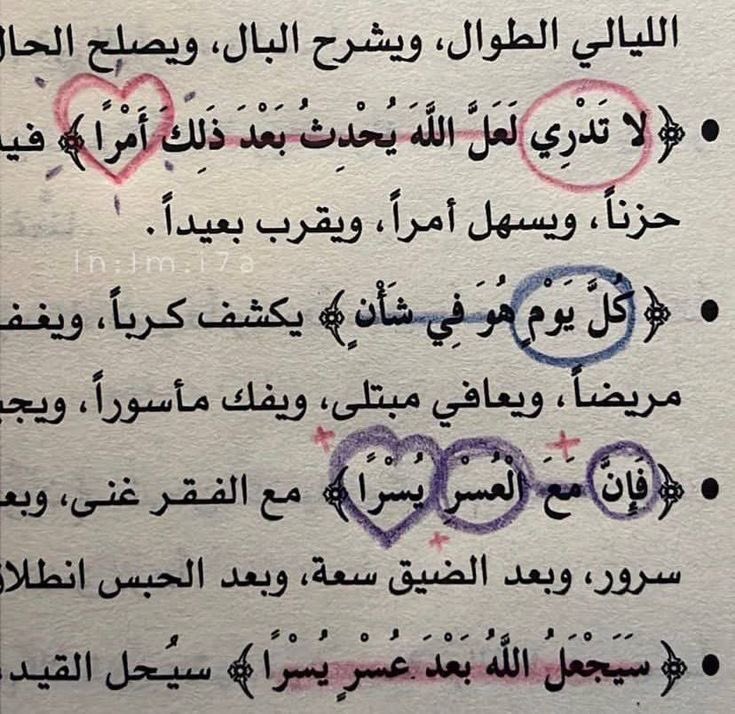 الليالي الطوال، ويشرح البال، ويصلح الحال
• ﴿لا تَدْرِي لَعَلَّ اللَّهَ يُحْدِثُ بَعْدَ ذَلِكَ أَمْرًا﴾
حزناً، ويسهل أمراً، ويقرب بعيداً.
In:Im.i7a
• ﴿كُلَّ يَوْمٍ هُوَ فِي شَأْنٍ﴾ يكشف كرباً،
مريضاً، ويعافي مبتلى، ويفك مأسوراً،
• ﴿فَإِنَّ مَعَ الْعُسْرِ يُسْرًا﴾ مع الفقر غنى،
سرور، وبعد الضيق سعة، وبعد الحبس
• ﴿سَيَجْعَلُ اللَّهُ بَعْدَ عُسْرٍ يُسْرًا﴾ سيُحل القيد